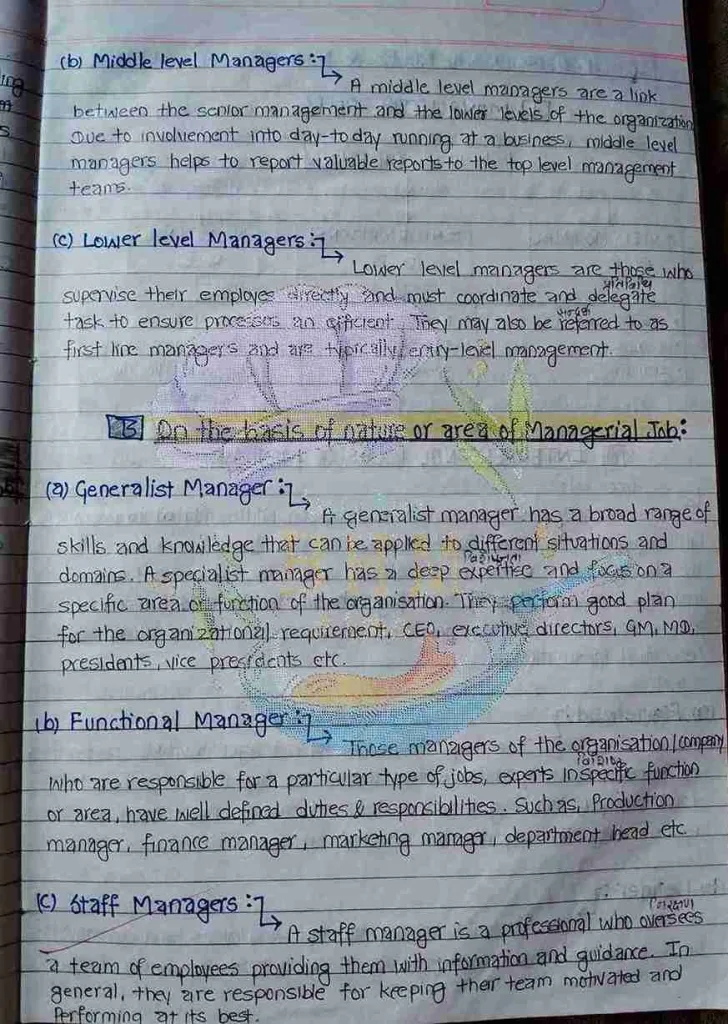 (b) Middle level Managers :-
A middle level managers are a link
between the senior management and the lower levels of the organization
Due to involvement into day-to day running at a business, middle level
managers helps to report valuable reports to the top level management
teams.
(c) Lower level Managers :-
Lower level managers are those who
supervise their employes directly and must coordinate and delegate
task to ensure processes an efficient. They may also be referred to as
first line managers and are typically entry-level management.
B On the basis of nature or area of Managerial Job:
(a) Generalist Manager :-
A generalist manager has a broad range of
skills and knowledge that can be applied to different situations and
domains. A specialist manager has a deep expertise and focus on a
specific area or function of the organisation. They perform good plan
for the organizational requirement, CEO, executive directors, GM, MD,
presidents, vice presidents etc.
(b) Functional Manager :-
Those managers of the organisation/company
who are responsible for a particular type of jobs, experts in specific function
or area, have well defined duties & responsibilities. Such as, Production
manager, finance manager, marketing manager, department head etc
(c) Staff Managers :-
A staff manager is a professional who oversees
a team of employees providing them with information and guidance. In
general, they are responsible for keeping their team motivated and
Performing at its best.